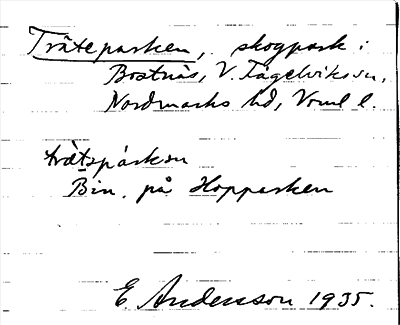 Träteparken, skogpark i
Bostnäs, V. Fågelviks sn,
Nordmarks hd, Vrml l.
trä̀tspárkən
Bin. på Hopparken
E Andersson 1935.